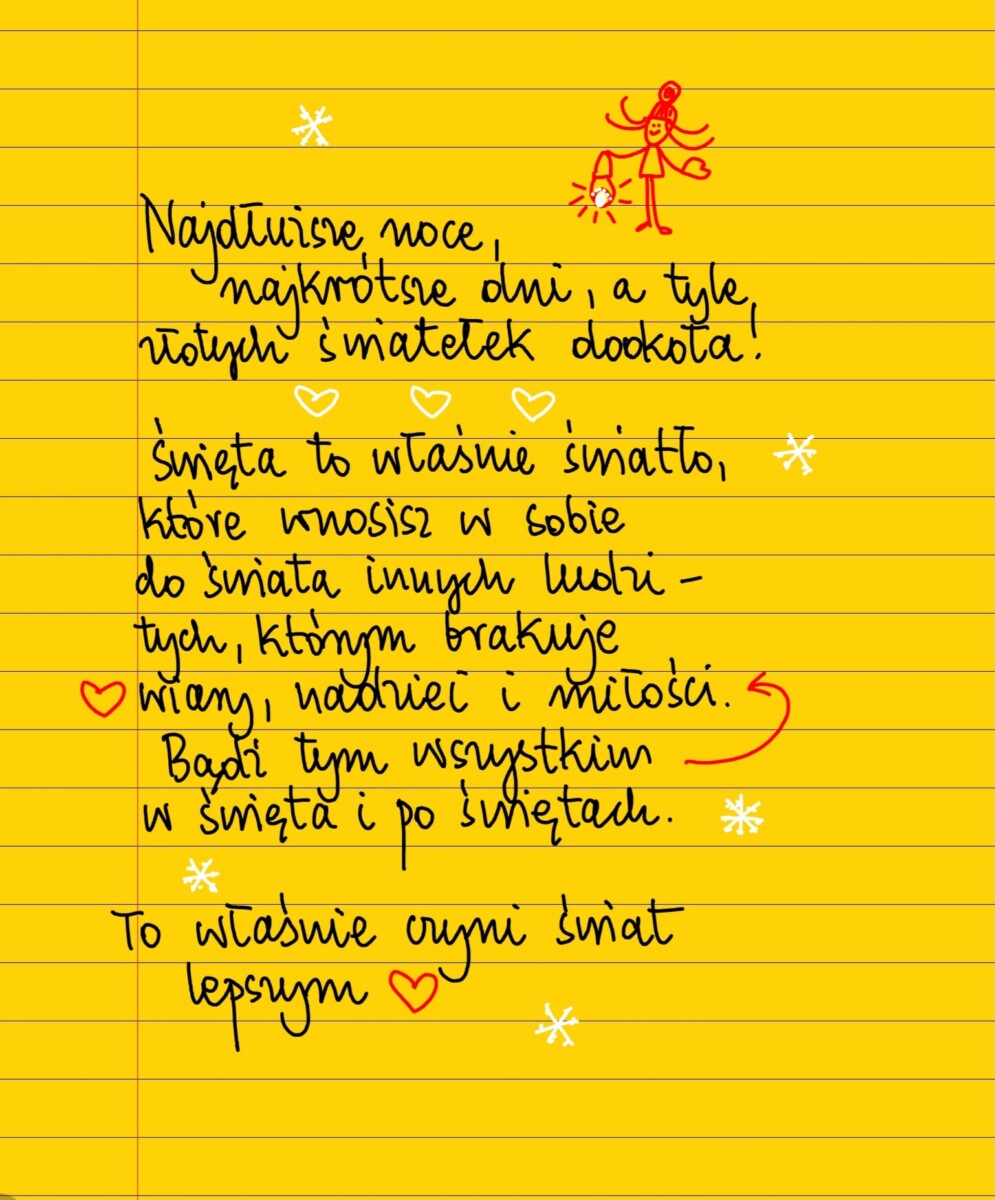 Najdłuższe noce,
najkrótsze dni, a tyle
złotych światełek dookoła!
Święta to właśnie światło,
które wnosisz w sobie
do świata innych ludzi –
tych, którym brakuje
wiary, nadziei i miłości.
Bądź tym wszystkim
w święta i po świętach.
To właśnie czyni świat
lepszym